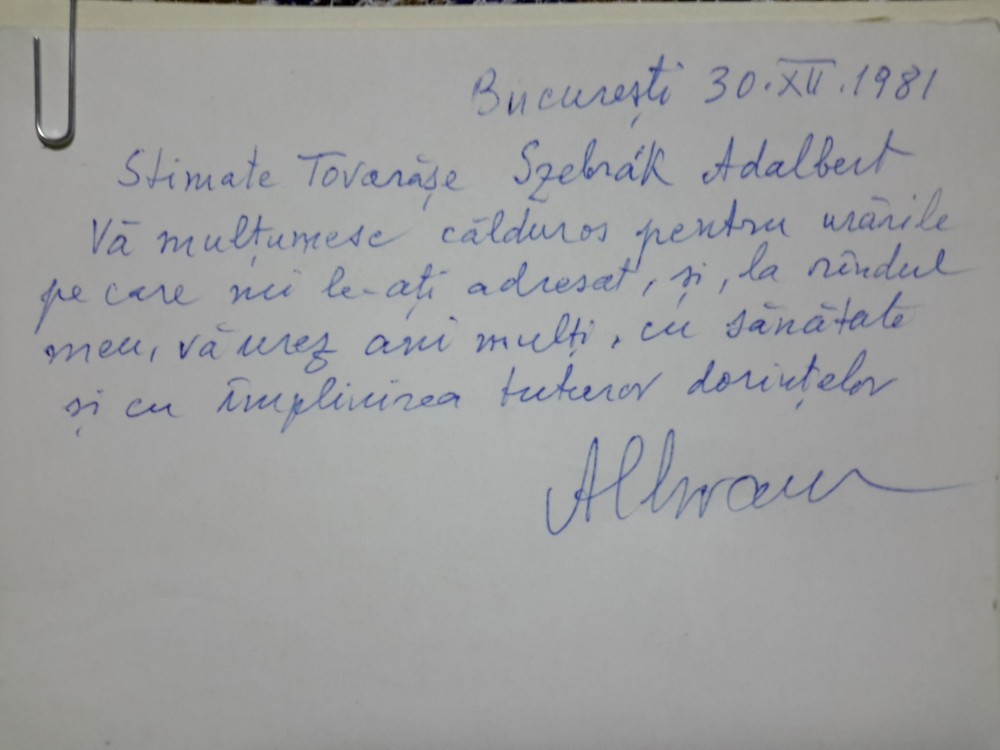 București 30.XII.1981
Stimate Tovarășe Szebrák Adalbert
Vă mulțumesc călduros pentru urările
pe care mi le-ați adresat, și, la rîndul
meu, vă urez ani mulți, cu sănătate
și cu împlinirea tuturor dorințelor